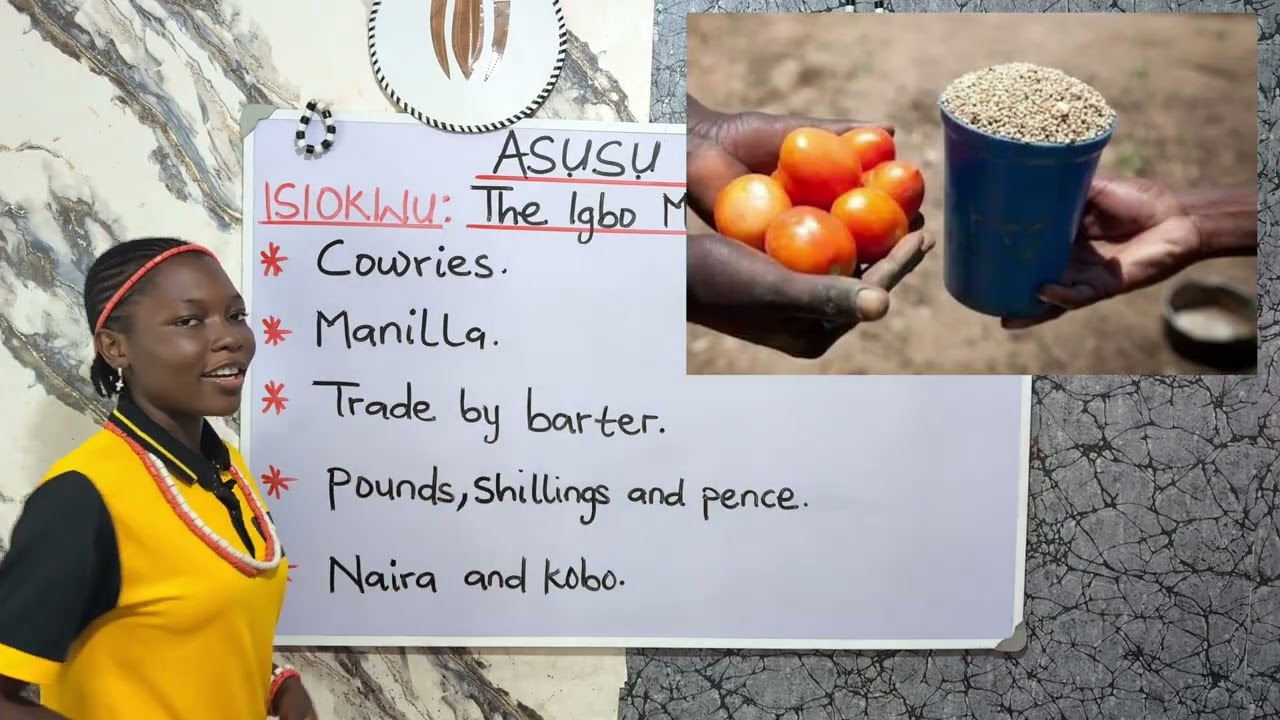 ASỤSỤ
ISIOKWU: The Igbo M
* Cowries.
* Manilla.
* Trade by barter.
* Pounds, Shillings and pence.
* Naira and kobo.